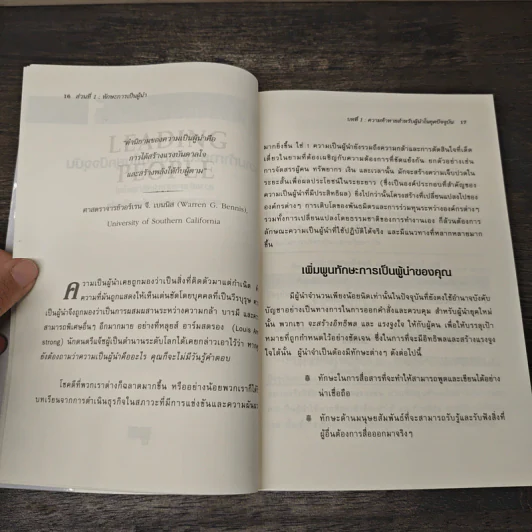 16 ส่วนที่ 1 : ทักษะการเป็นผู้นำ
"คำนิยามของความเป็นผู้นำคือ
การได้สร้างแรงบันดาลใจ
และสร้างพลังให้กับผู้ตาม"
ศาสตราจารย์วอร์เรน จี. เบนนิส (Warren G. Bennis),
University of Southern California
ความเป็นผู้นำเคยถูกมองว่าเป็นสิ่งที่ติดตัวมาแต่กำเนิด
ความที่มันถูกแสดงให้เห็นเด่นชัดโดยบุคคลที่เป็นวีรบุรุษ
เป็นผู้นำจึงถูกมองว่าเป็นการผสมผสานระหว่างความกล้า บารมี และ
สามารถพิเศษอื่นๆ อีกมากมาย อย่างที่หลุยส์ อาร์มสตรอง (Louis Arm-
strong) นักดนตรีแจ๊ซผู้เป็นตำนานระดับโลกได้เคยกล่าวเอาไว้ว่า
ยังต้องถามว่าความเป็นผู้นำคืออะไร คุณก็จะไม่มีวันรู้คำตอบ
โชคดีที่พวกเราต่างก็ฉลาดมากขึ้น หรืออย่างน้อยพวกเราก็ได้
บทเรียนจากการดำเนินธุรกิจในสภาวะที่มีการแข่งขันและความผัน
บทที่ 1 : ความท้าทายสำหรับผู้นำในยุคปัจจุบัน 17
มากยิ่งขึ้น ใช่ ! ความเป็นผู้นำยังรวมถึงความกล้าและการตัดสินใจที่เด็ด
เดี่ยวในยามที่ต้องเผชิญกับความต้องการที่ขัดแย้งกัน ยกตัวอย่างเช่น
การจัดสรรผู้คน ทรัพยากร เงิน และเวลานั้น มักจะสร้างความเจ็บปวดใน
ระยะสั้นเพื่อผลประโยชน์ในระยะยาว (ซึ่งเป็นองค์ประกอบที่สำคัญของ
ความเป็นผู้นำที่มีประสิทธิผล) ยิ่งไปกว่านั้นโครงสร้างที่เปลี่ยนแปลงไปของ
องค์กรต่างๆ การเติบโตของพันธมิตรและการร่วมทุนระหว่างองค์กรต่างๆ
รวมทั้งการเปลี่ยนแปลงโดยธรรมชาติของการทำงานเอง ก็ล้วนต้องการ
ลักษณะความเป็นผู้นำที่ใช้ปฏิบัติได้จริง และมีแนวทางที่หลากหลายมาก
ขึ้น
เพิ่มพูนทักษะการเป็นผู้นำของคุณ
มีผู้นำจำนวนเพียงน้อยนิดเท่านั้นในปัจจุบันที่ยังคงใช้อำนาจบังคับ
บัญชาอย่างเป็นทางการในการออกคำสั่งและควบคุม สำหรับผู้นำยุคใหม่
นั้น พวกเขา จะสร้างอิทธิพล และ แรงจูงใจ ให้กับผู้คน เพื่อให้บรรลุเป้า
หมายที่ถูกกำหนดไว้อย่างชัดเจน ซึ่งในการที่จะมีอิทธิพลและสร้างแรงจูง
ใจได้นั้น ผู้นำจำเป็นต้องมีทักษะต่างๆ ดังต่อไปนี้
ทักษะในการสื่อสารที่จะทำให้สามารถพูดและเขียนได้อย่าง
น่าเชื่อถือ
ทักษะด้านมนุษยสัมพันธ์ที่จะสามารถรับรู้และรับฟังสิ่งที่
ผู้อื่นต้องการสื่อออกมาจริงๆ